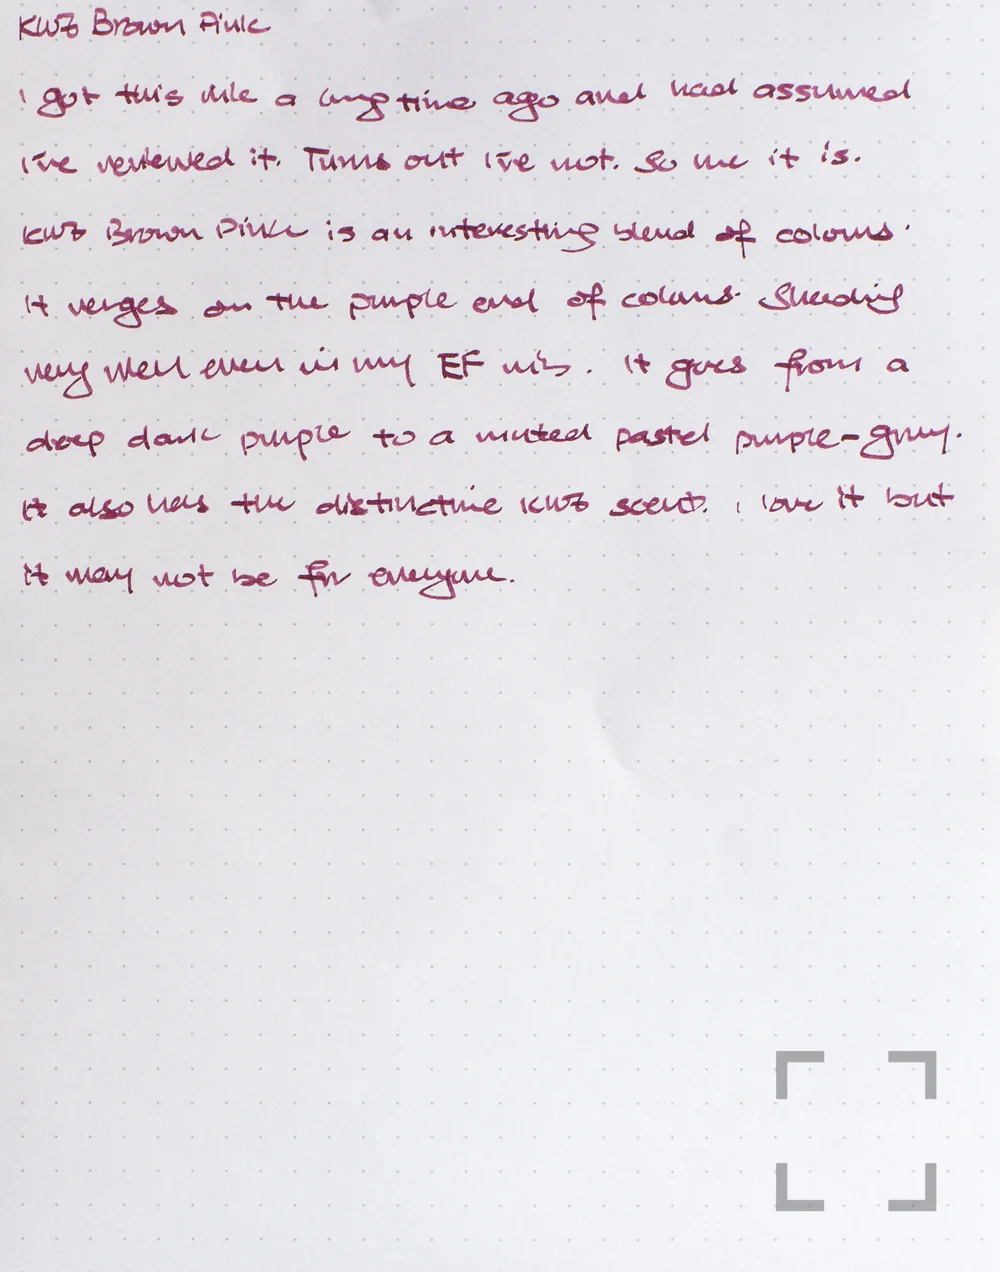 KWZ Brown Pink
I got this ink a long time ago and had assumed
I've reviewed it. Turns out I've not. So here it is.
KWZ Brown Pink is an interesting blend of colours.
It verges on the purple end of colours. Shading
very well even in my EF nib. It goes from a
deep dark purple to a muted pastel purple-grey.
It also has the distinctive KWZ scent. I love it but
it may not be for everyone.